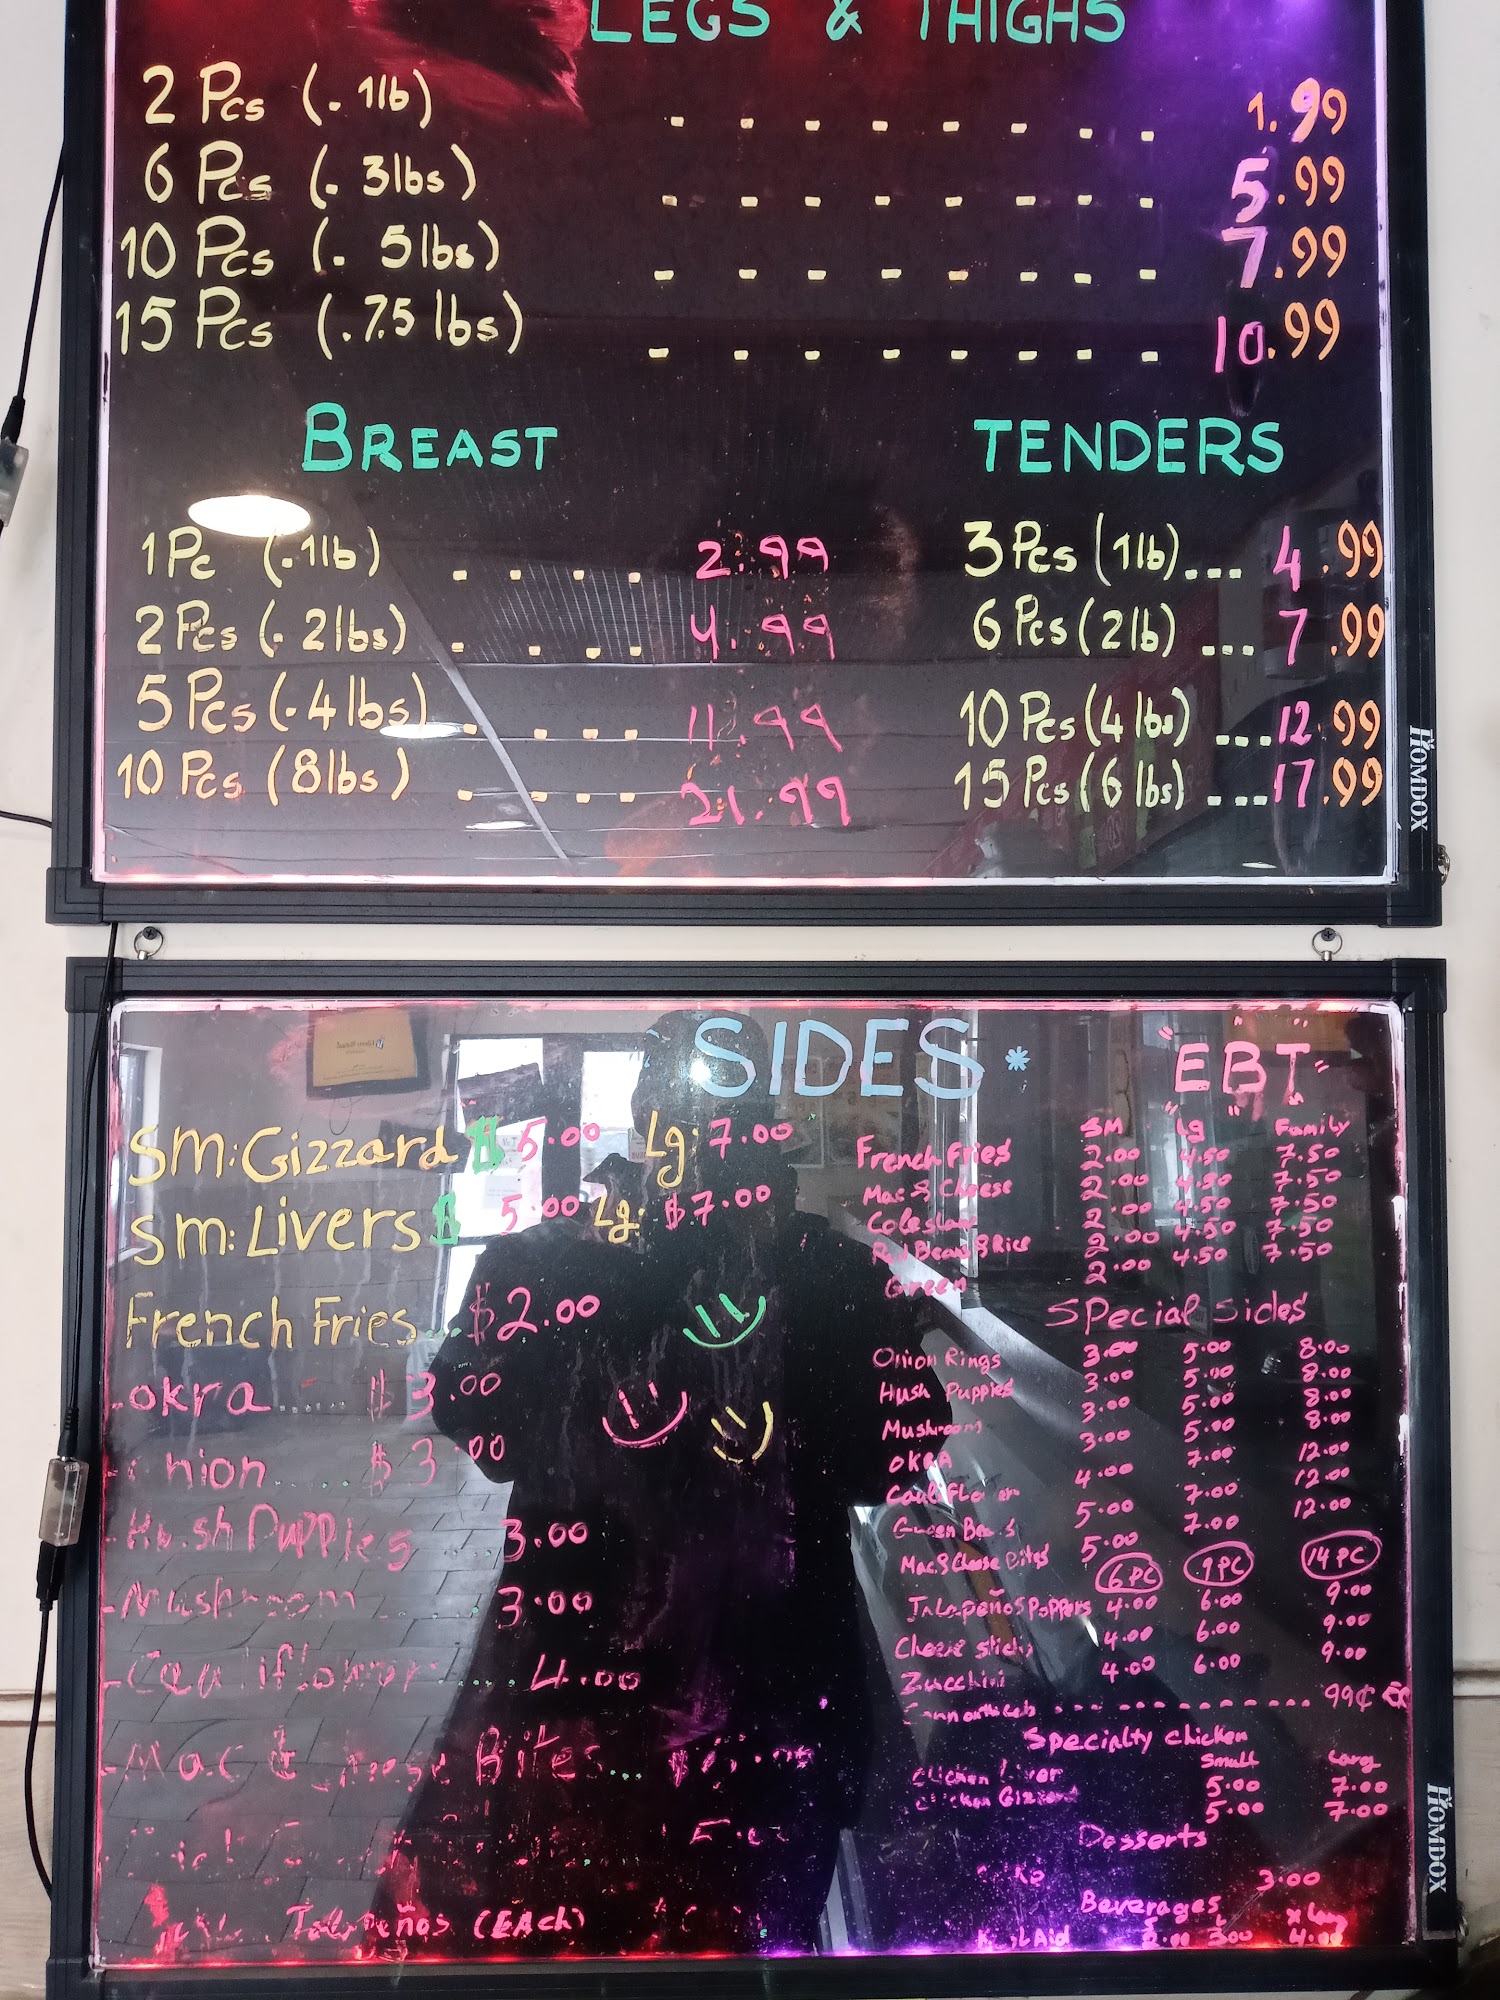 LEGS & THIGHS
2 Pcs (. 1lb) - - - - - - - - 1.99
6 Pcs (. 3lbs) - - - - - - - - 5.99
10 Pcs (. 5lbs) - - - - - - - - 7.99
15 Pcs (.7.5 lbs) - - - - - - - - 10.99
BREAST
1 Pc (.1lb) . . . . 2.99
2 Pcs (. 2lbs) . . . . 4.99
5 Pcs (. 4lbs) . . . . 11.99
10 Pcs (8lbs) . . . . 21.99
TENDERS
3 Pcs (1lb)... 4.99
6 Pcs (2lb) ... 7.99
10 Pcs (4lbs) ... 12.99
15 Pcs (6lbs) ... 17.99
HOMDOX
SIDES *
"EBT"
Sm: Gizzard $ 5.00 Lg: 7.00
Sm: Livers $ 5.00 Lg: $7.00
French Fries... $2.00
-okra..... $3.00
nion..... $3.00
-Hush Puppies 3.00
-Mushroom 3.00
-Cauliflower..... 4.00
-Mac & Cheese Bites...
Jalapeños (EAch)
SM Lg Family
French Fries 2.00 4.50 7.50
Mac & Cheese 2.00 4.50 7.50
Coleslaw 2.00 4.50 7.50
Red Beans & Rice 2.00 4.50 7.50
Green 2.00 4.50 7.50
Special Sides
Onion Rings 3.00 5.00 8.00
Hush Puppies 3.00 5.00 8.00
Mushroom 3.00 5.00 8.00
OKRA 3.00 5.00 8.00
Cauliflower 4.00 7.00 12.00
Green Beans 5.00 7.00 12.00
Mac & Cheese Bites 5.00 7.00 12.00
6 PC 9 PC 14 PC
Jalapeños Poppers 4.00 6.00 9.00
Cheese sticks 4.00 6.00 9.00
Zucchini 4.00 6.00 9.00
99¢
Specialty chicken
Small Larg
Chicken Liver 5.00 7.00
Chicken Gizzard 5.00 7.00
Desserts
3.00
Beverages
X Larg
KoolAid 2.00 3.00 4.00
HOMDOX